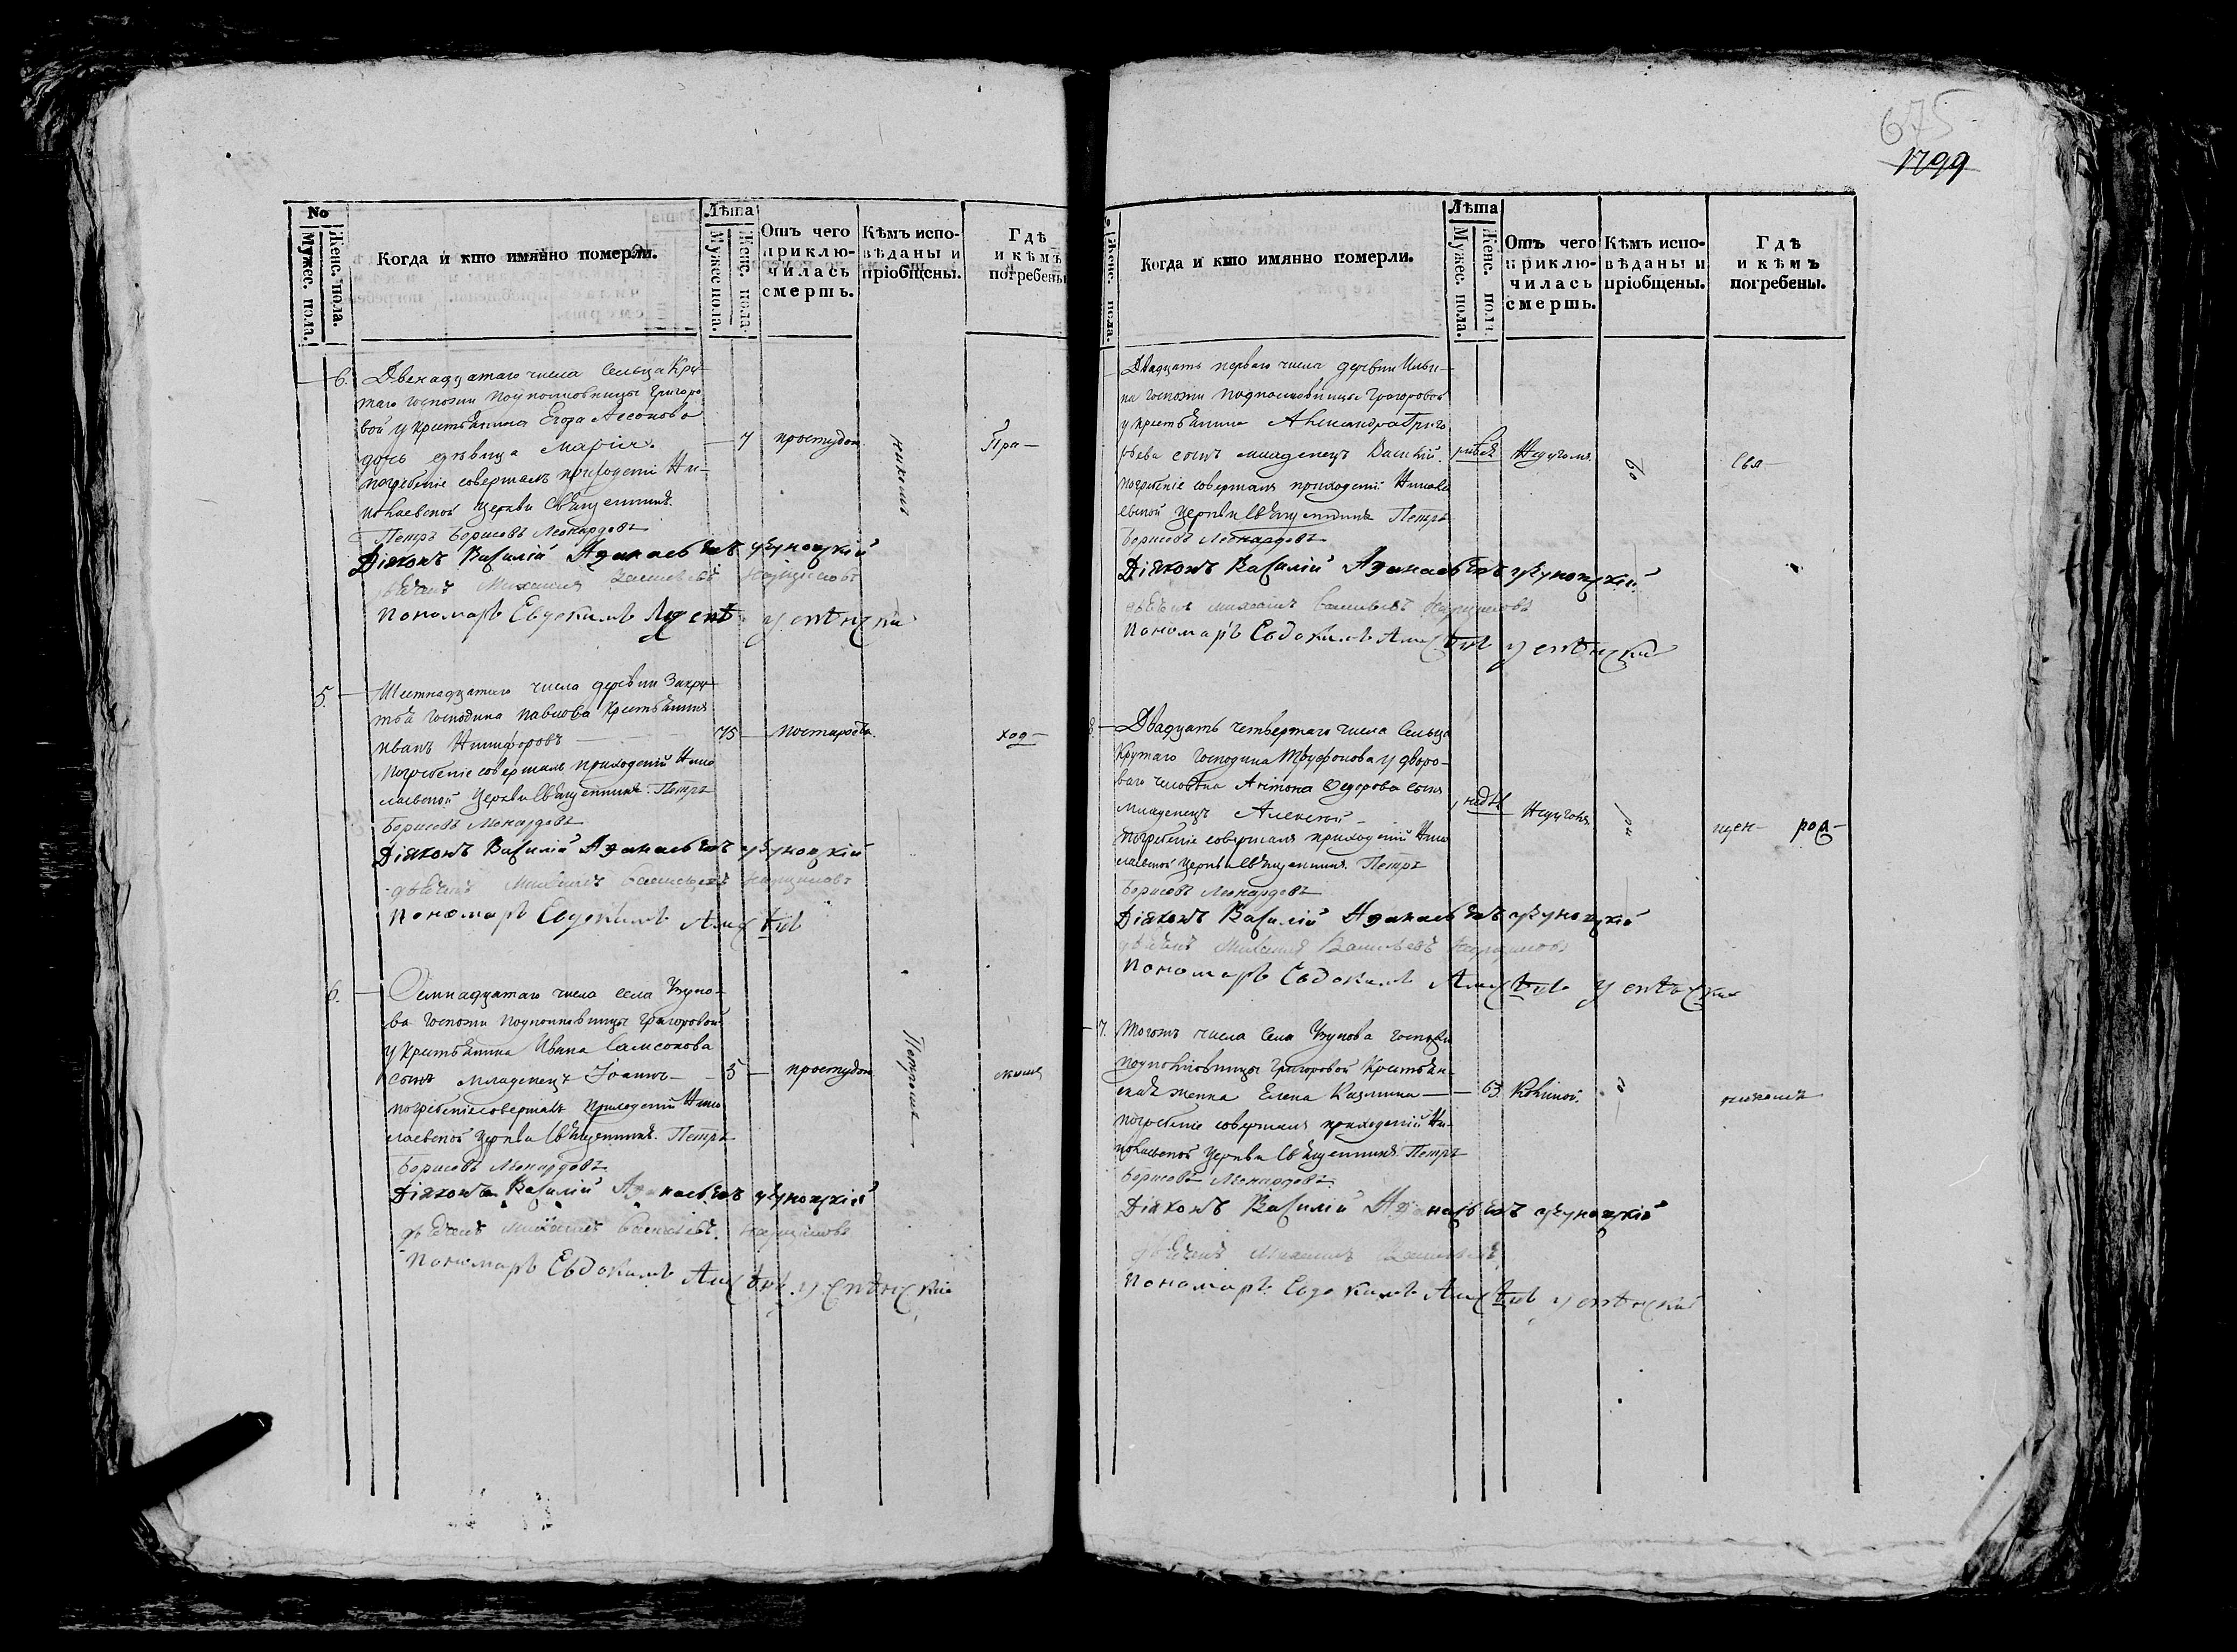 675
1799
No
Мужес. пола.
Женс. пола.
Когда и кто имянно померли.
Лѣта
Мужес. пола.
Женс. пола.
Отъ чего приклю-
чилась смерть.
Кѣмъ испо-
вѣданы и
пріобщены.
Гдѣ
и кѣмъ
погребены
6. Двенадцатаго числа Сельца Кру-
таго Госпожи Подполковницы Григоро
вой у крестьянина Егора
дочь девица Марія. 7 простудою никемъ При-
погребеніе совершалъ приходский Ни-
колаевской церкви Священникъ
Петръ Борисовъ Леонардовъ
Діяконъ Василій Афанасьевъ
Михаилъ Васильевъ
Пономарь Евдокимъ
5. Шестнадцатаго числа деревни Закру
тья Господина Павлова крестьянинъ
Иванъ Никифоровъ 75 постарости ход-
Погребеніе совершалъ приходский Нико
лаевской Церкви Священникъ Петръ
Борисовъ Леонардовъ
Діяконъ Василій Афанасьевъ
Михаилъ Васильевъ
Пономарь Евдокимъ
6. Осмнадцатаго числа села Узуно-
ва Госпожи Подполковницы Григоровой
у крестьянина Ивана Самсонова
сынъ младенецъ Іоаннъ 5 простудою Петромъ
погребеніе совершалъ приходский Нико
лаевской Церкви Священникъ Петръ
Борисовъ Леонардовъ
Діяконъ Василій Афанасьевъ
Михаилъ Васильевъ
Пономарь Евдокимъ
Женс. пола.
Когда и кто имянно померли.
Лѣта
Мужес. пола.
Женс. пола.
Отъ чего
приклю-
чилась
смерть.
Кѣмъ испо-
вѣданы и
пріобщены.
Гдѣ
и кѣмъ
погребены.
Двадцать перваго числа деревни Ильи-
на Госпожи подполковницы Григоровой
у крестьянина Александра Григо
рьева сынъ младенецъ Василій. Бо Свя-
погребеніе совершалъ приходский Никола
евской церкви Священникъ Петръ
Борисовъ Леонардовъ
Діяконъ Василій Афанасьевъ
Михаилъ Васильевъ
Пономарь Евдокимъ
8. Двадцать четвертаго числа Сельца
Крутаго Господина Труфонова у дворо-
ваго человѣка Антона Федорова сынъ
младенецъ Алексѣй нед ри щен- ром-
погребеніе совершалъ приходский Нико
лаевской церкви Священникъ Петръ
Борисовъ Леонардовъ
Діяконъ Василій Афанасьевъ
Михаилъ Васильевъ
Пономарь Евдокимъ
7. Тогожъ числа Села Узунова Госпожи
подполковницы Григоровой Крестьян-
ская женка Елена Козмина 63
погребеніе совершалъ приходский Ни-
колаевской Церкви Священникъ Петръ
Борисовъ Леонардовъ
Діяконъ Василій Афанасьевъ
Михаилъ Васильевъ
Пономарь Евдокимъ